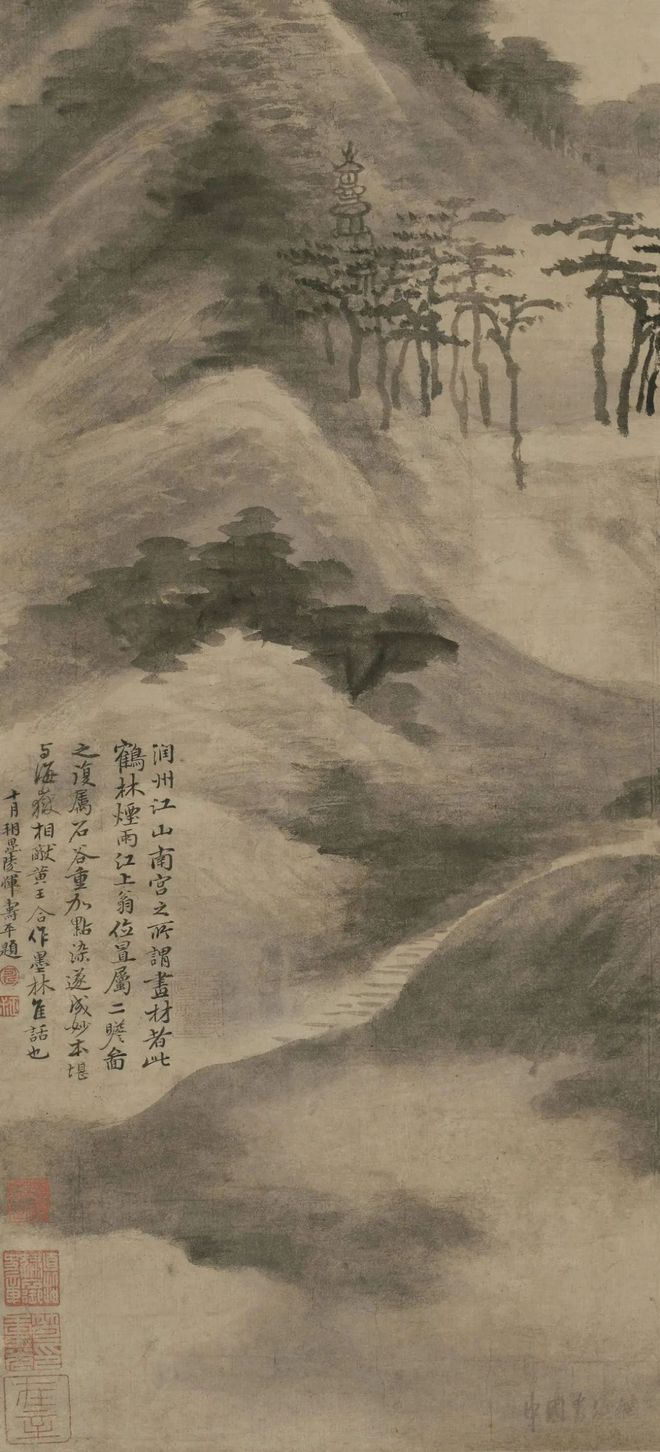 润州江山南宫之所謂畫材者此
鶴林煙雨江上翁位置属二瞻畵
之復属石谷重加點染遂成妙本堪
与海嶽相敵黄王合作墨林隹話也
十月朔毘陵惲壽平題